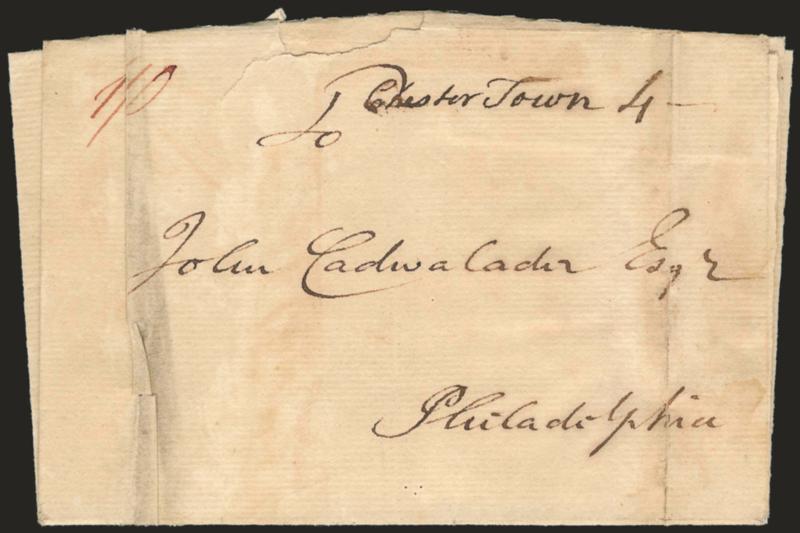 1/10 Chester Town 4
To
John Cadwalader Esqr
Philadelphia